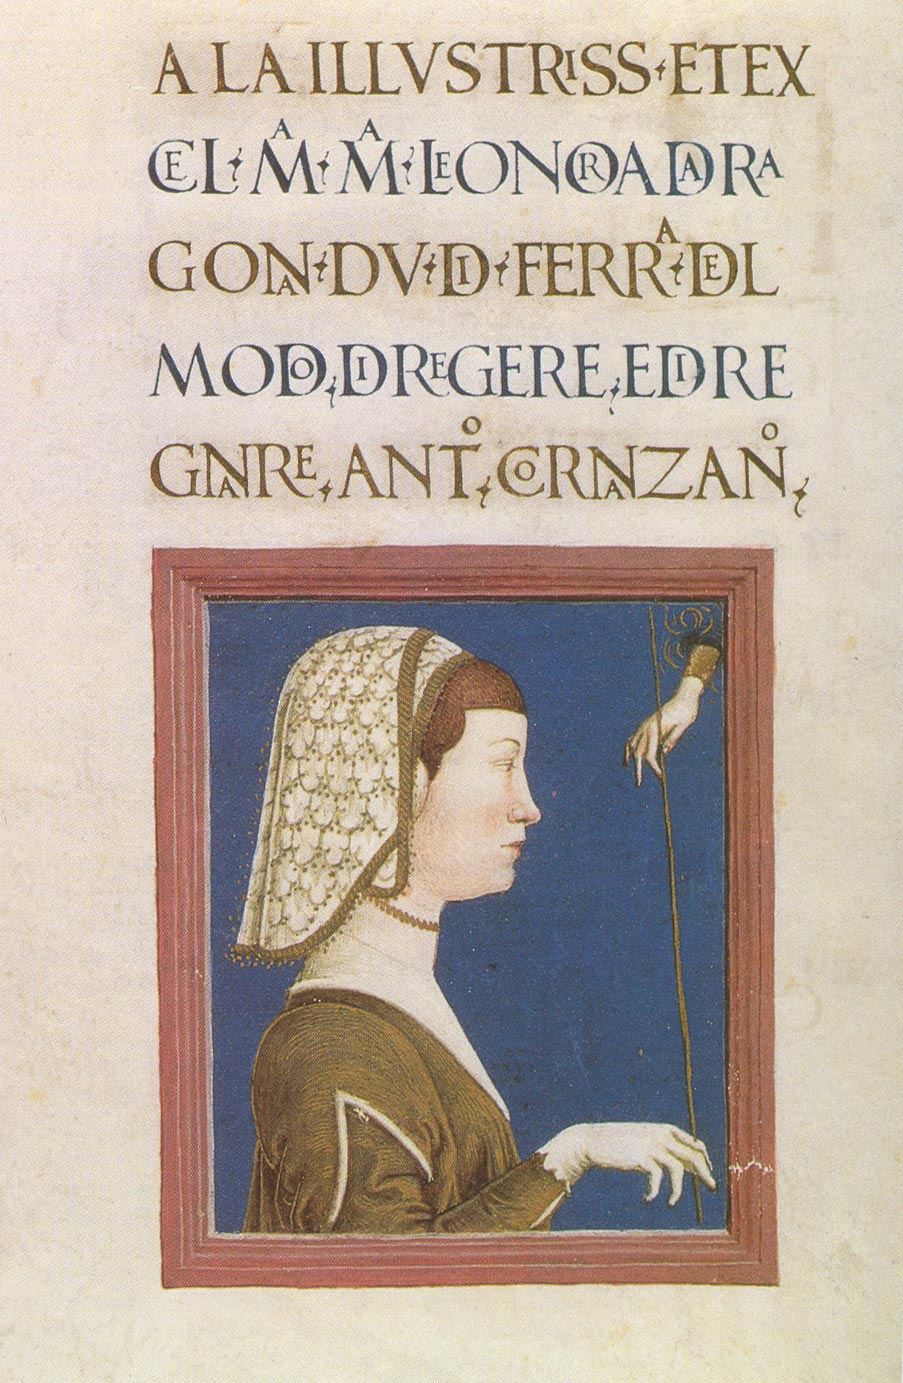 A LA ILLVSTRISS·ET EX
CEL·MA·MA·LEONORA DARA
GONA·DV·DI·FERRA·DEL
MODO, DI REGERE, E DI RE
GNARE, ANTO, CORNAZANO,